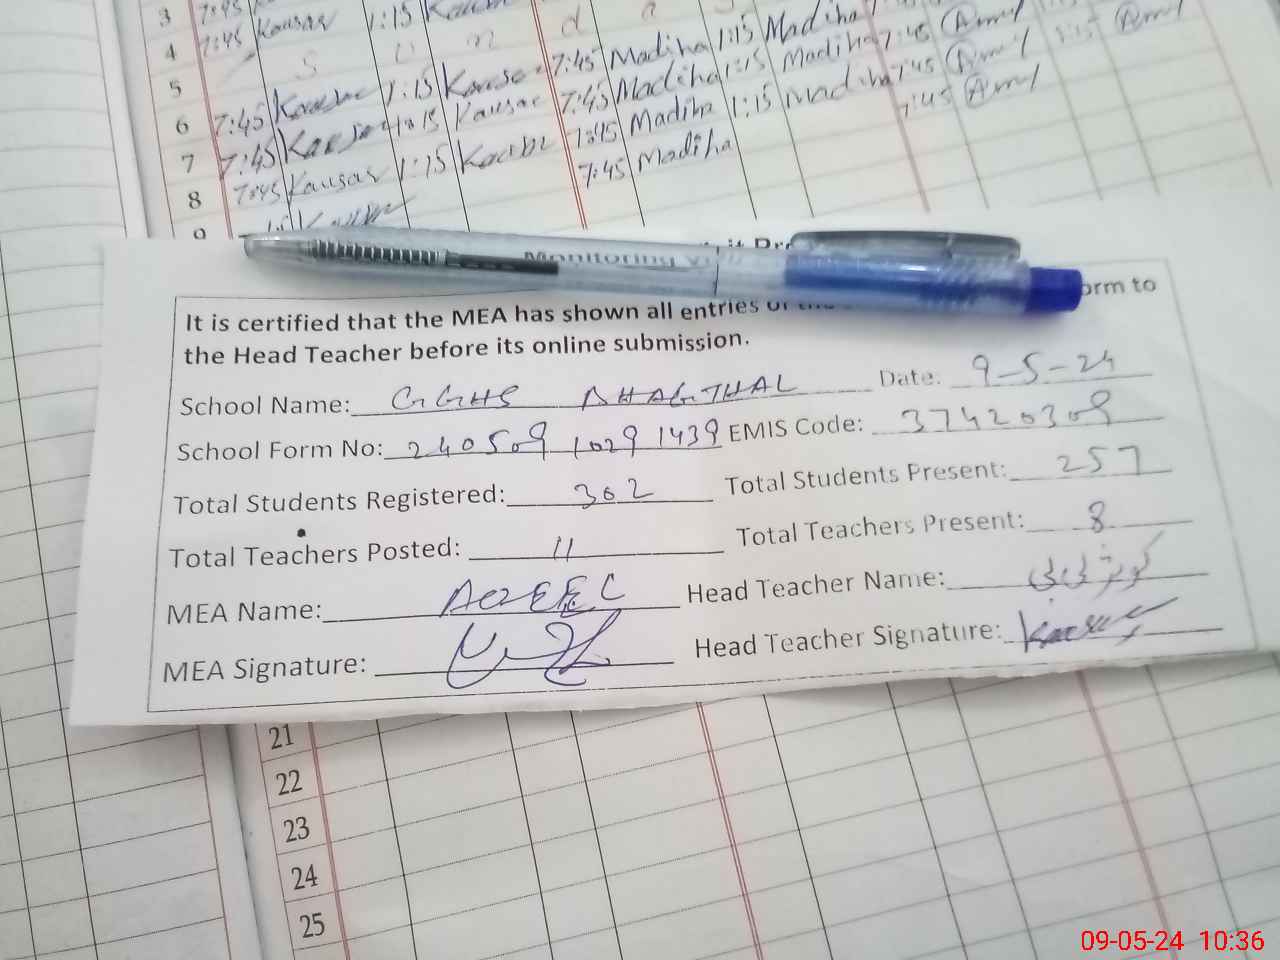 3 7:45
4 7:45 Kausar 1:15
5 S u n d a
6 7:45 Kausar 1:15 Kausar 7:45 Madiha 1:15 Madiha
7 7:45 Kausar 1:15 Kausar 7:45 Madiha 1:15 Madiha 7:45
8 7:45 Kausar 1:15 7:45 Madiha 1:15 Madiha 7:45
9 7:45 Madiha 7:45
Monitoring
It is certified that the MEA has shown all entries orm to
the Head Teacher before its online submission.
School Name: GGHS BHAGTHAL Date: 9-5-24
School Form No: 240509 1029 1439 EMIS Code: 37420309
Total Students Registered: 302 Total Students Present: 257
Total Teachers Posted: 11 Total Teachers Present: 8
MEA Name: Head Teacher Name: کوثر بی بی
MEA Signature: Head Teacher Signature: Kausar
21
22
23
24
25
09-05-24 10:36